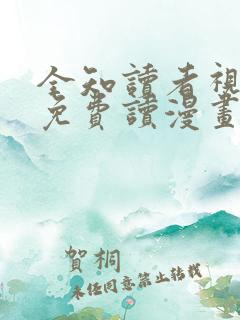 全知讀者視
免費讀漫畫
賀桐
未經同意禁止轉載